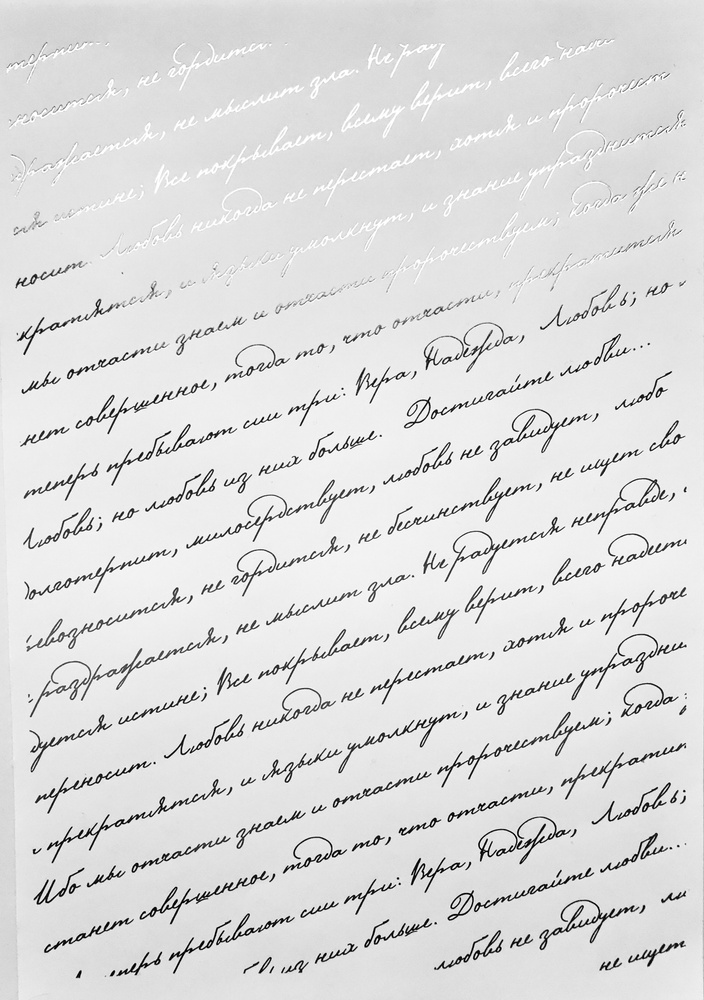 терпит,
носится, не гордится.
дражается, не мыслит зла. Не рад
ся истине; Все покрывает, всему верит, всего наде
носит. Любовь никогда не перестает, хотя и пророчест
кратятся, и языки умолкнут, и знание упразднится
мы отчасти знаем и отчасти пророчествуем; когда же н
нет совершенное, тогда то, что отчасти, прекратится
теперь пребывают сии три: Вера, Надежда, Любовь; но
Любовь; но любовь из них больше. Достигайте любви...
долготерпит, милосердствует, любовь не завидует, любо
евозносится, не гордится, не бесчинствует, не ищет сво
раздражается, не мыслит зла. Не радуется неправде,
дуется истине; Все покрывает, всему верит, всего надеет
переносит. Любовь никогда не перестает, хотя и пророче
прекратятся, и языки умолкнут, и знание упраздни
Ибо мы отчасти знаем и отчасти пророчествуем; когда
станет совершенное, тогда то, что отчасти, прекратит
перь пребывают сии три: Вера, Надежда, Любовь;
из них больше. Достигайте любви...
любовь не завидует, лю
не ищет